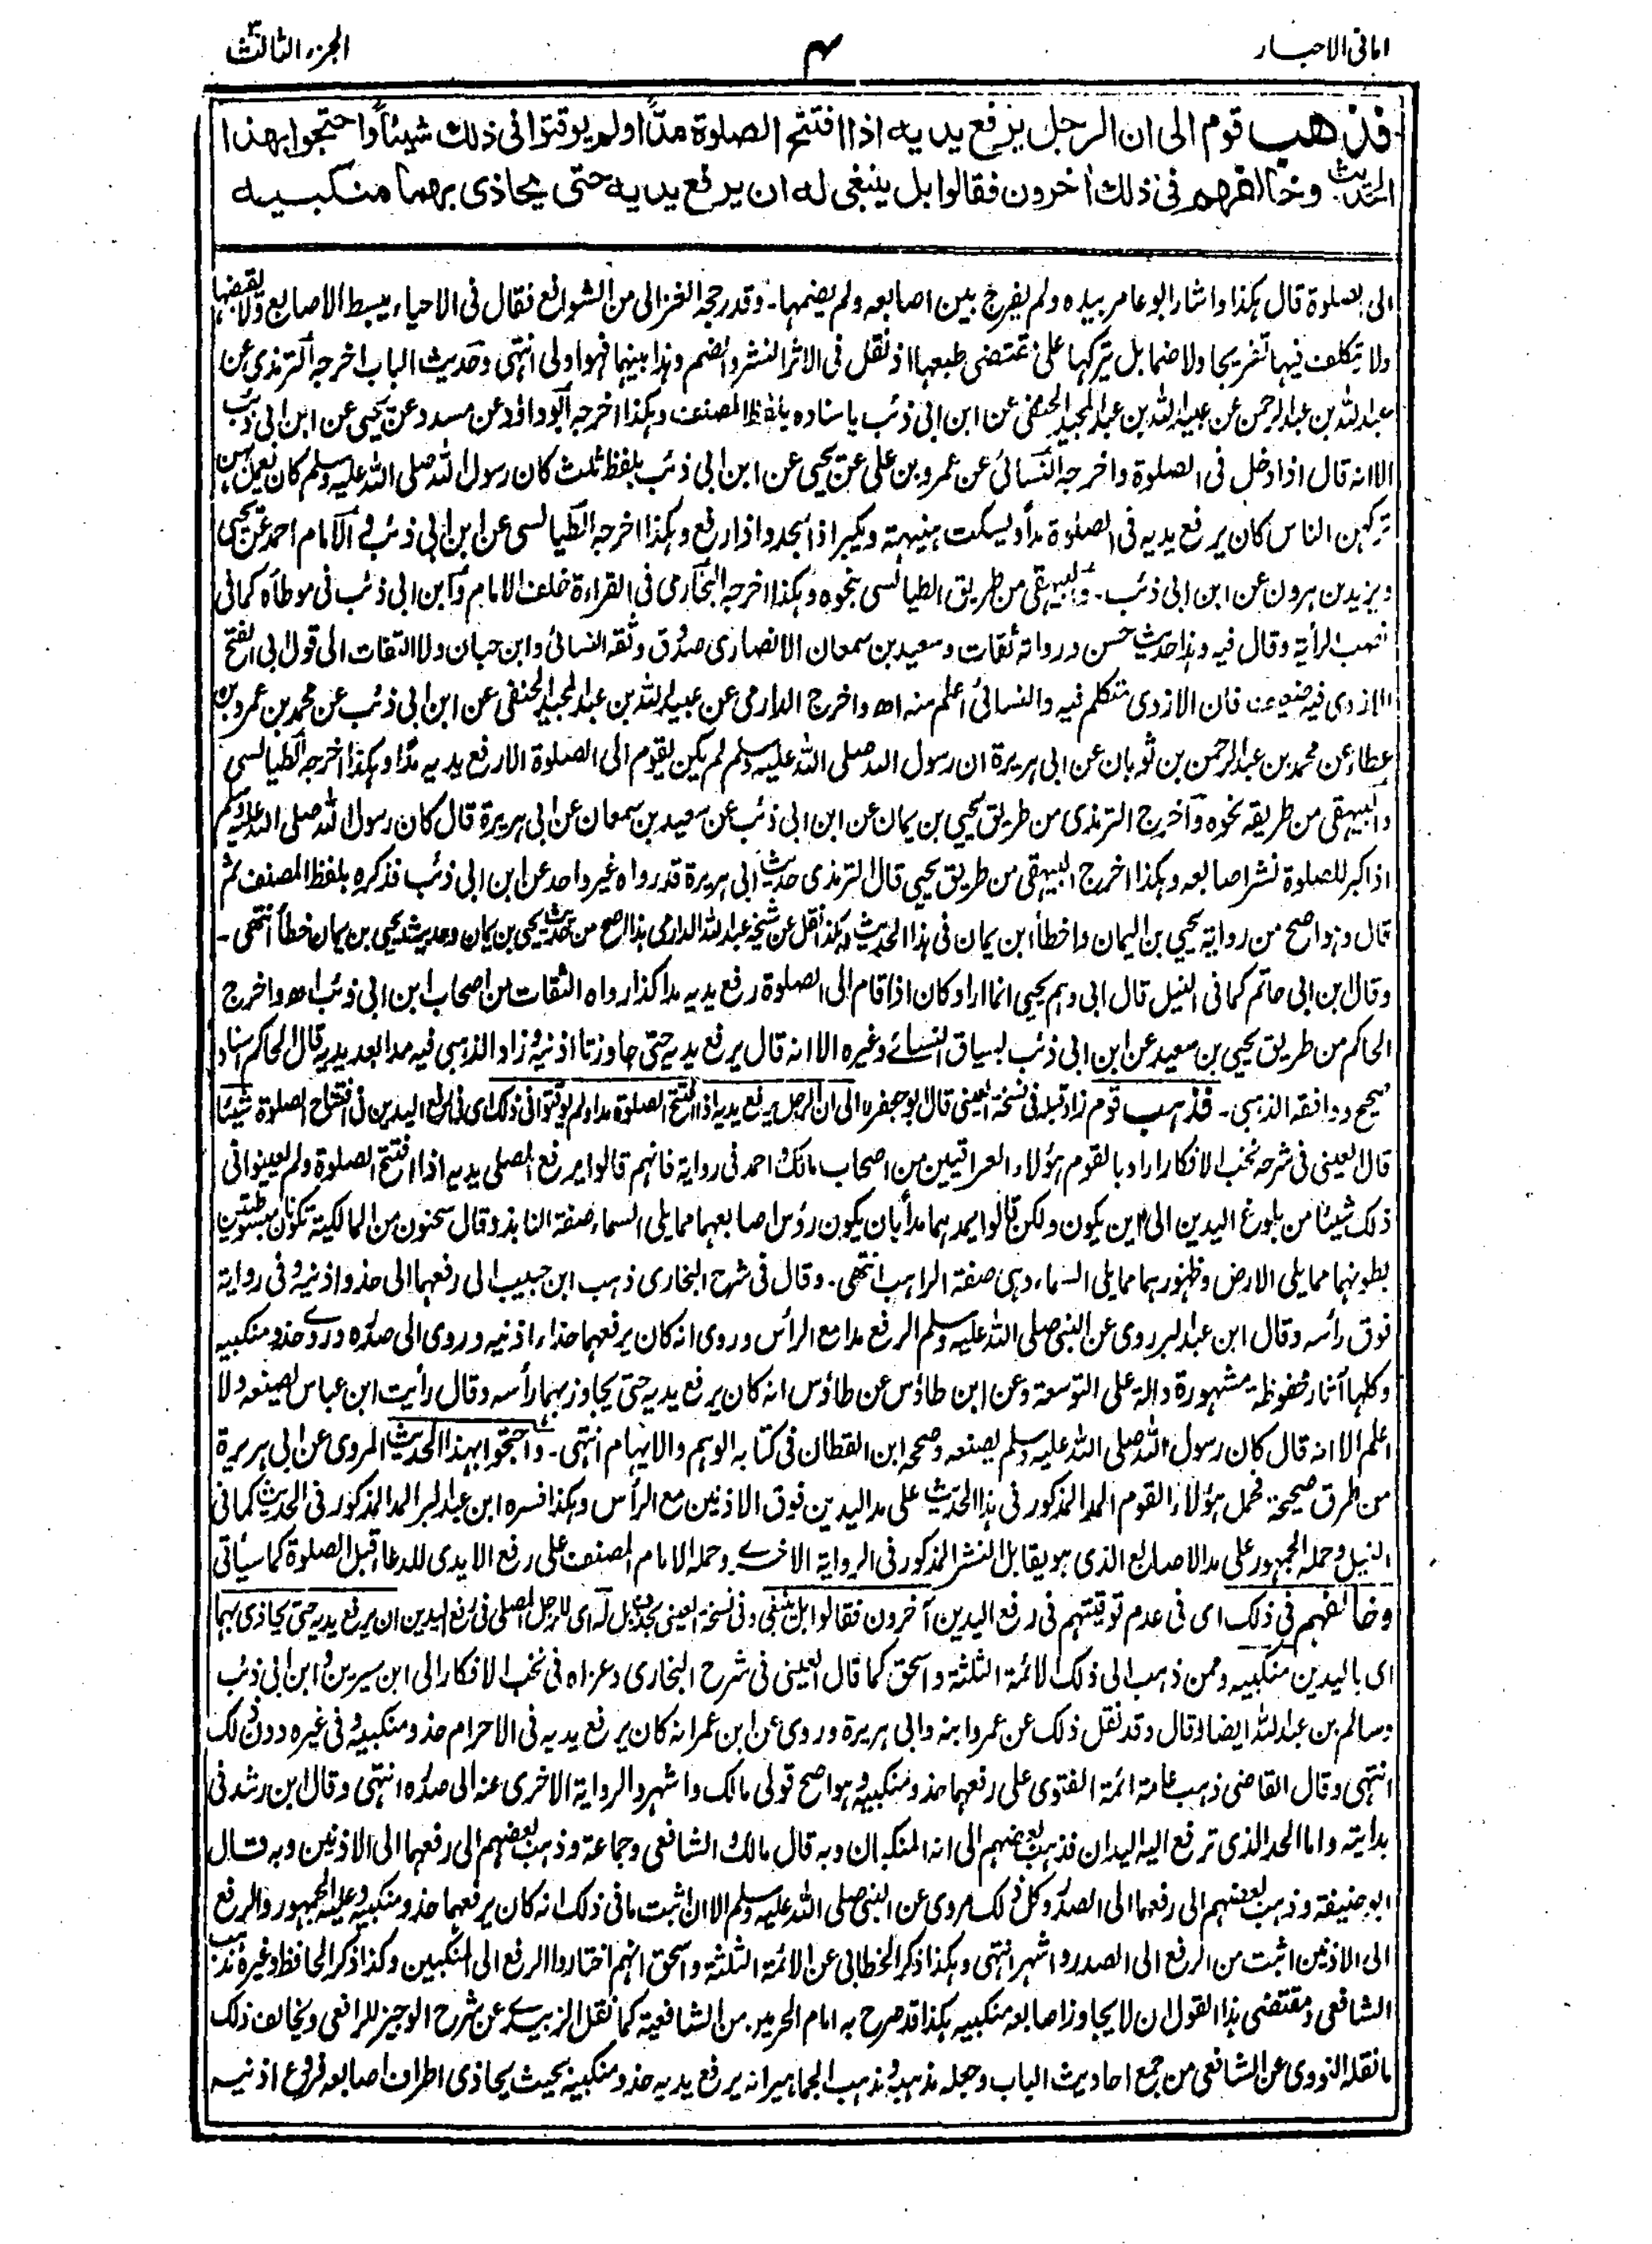 امانی الاحبار
۳
الجزء الثالث
فذهب قوم الى ان الرجل يرفع يديه اذا افتتح الصلوة مدًّا ولم يوقتوا فى ذلك شيئاً واحتجوا بهذا
الحديث وخالفهم فى ذلك اٰخرون فقالوا بل ينبغى له ان يرفع يديه حتى يحاذى بهما منكبيه
الى الصلوة قال هكذا واشار ابو عامر بيده ولم يفرج بين اصابعه ولم يضمها۔ وقد رجحه الغزالى من الشوافع فقال فى الاحياء يبسط الاصابع ولا يقبضها
ولا يتكلف فيها تفريجا ولا ضما بل يتركها على مقتضى طبعها اذ نقل فى الاثر النشر والضم وهذا بينهما فهو اولى انتهى وحديث الباب اخرجه الترمذى عن
عبد الله بن عبد الرحمن عن عبيد الله بن عبد المجيد الحنفى عن ابن ابى ذئب باسناده بلفظ المصنف وهكذا اخرجه ابو داؤد عن مسدد عن يحيى عن ابن ابى ذئب
الا انه قال اذا دخل فى الصلوة واخرجه النسائى عن عمرو بن على عن يحيى عن ابن ابى ذئب بلفظ ثلث كان رسول الله صلى الله عليه وسلم كان يعمل بهن
تركهن الناس كان يرفع يديه فى الصلوة مدا ويسكت هنيهة ويكبر اذا سجد واذا رفع وهكذا اخرجه الطيالسى عن ابن ابى ذئب و الامام احمد عن يحيى
ويزيد بن هرون عن ابن ابى ذئب۔ والبيهقى من طريق الطيالسى بنحوه وهكذا اخرجه البخارى فى القراءة خلف الامام وابن ابى ذئب فى موطأه كما فى
نصب الراية وقال فيه وهذا حديث حسن ورواته ثقات وسعيد بن سمعان الانصارى صدوق وثقه النسائى وابن حبان ولا التفات الى قول ابى الفتح
الازدى فيه ضعيف فان الازدى متكلم فيه والنسائى اعلم منه اھ واخرج الدارمى عن عبيد الله بن عبد المجيد الحنفى عن ابن ابى ذئب عن محمد بن عمرو بن
عطاء عن محمد بن عبد الرحمن بن ثوبان عن ابى هريرة ان رسول الله صلى الله عليه وسلم لم يكن يقوم الى الصلوة الا رفع يديه مدا وهكذا اخرجه الطيالسى
والبيهقى من طريقه نحوه واخرج الترمذى من طريق يحيى بن يمان عن ابن ابى ذئب عن سعيد بن سمعان عن ابى هريرة قال كان رسول الله صلى الله عليه وسلم
اذا كبر للصلوة نشر اصابعه وهكذا اخرج البيهقى من طريق يحيى قال الترمذى حديث ابى هريرة قد رواه غير واحد عن ابن ابى ذئب فذكره بلفظ المصنف ثم
قال وهو اصح من رواية يحيى بن اليمان واخطأ ابن يمان فى هذا الحديث وهكذا نقل عن شيخه عبد الله الدارمى هذا اصح من حديث يحيى بن يمان وحديث يحيى بن يمان خطأ انتهى۔
وقال ابن ابى حاتم كما فى النيل قال ابى وهم يحيى انما اراد كان اذا قام الى الصلوة رفع يديه مدا كذا رواه الثقات من اصحاب ابن ابى ذئب اھ واخرج
الحاكم من طريق يحيى بن سعيد عن ابن ابى ذئب بسياق النسائے وغيره الا انه قال يرفع يديه حتى جاوزتا اذنيه وزاد الذهبى فيه مدا بعد يديه قال الحاكم اسناده
صحيح ووافقه الذهبى۔ فذهب قوم زاد قبله فى نسخة العينى قال ابو جعفره الى ان الرجل يرفع يديه اذا افتتح الصلوة مدا ولم يوقتوا فى ذلك اى فى رفع اليدين فى افتتاح الصلوة شيئا
قال العينى فى شرحه نخب الافكار اراد بالقوم هؤلاء العراقيين من اصحاب مالك واحمد فى رواية فانهم قالوا يرفع المصلى يديه اذا افتتح الصلوة ولم يعينوا فى
ذلك شيئا من بلوغ اليدين الى اين يكون ولكن قالوا يمدهما مدا بان يكون رؤس اصابعهما مما يلى السماء صفة النابذ وقال سحنون من المالكية تكونان مبسوطتين
بطونهما مما يلى الارض وظهورهما مما يلى السماء وهى صفة الراهب انتهى۔ وقال فى شرح البخارى ذهب ابن حبيب الى رفعهما الى حذو اذنيه وفى رواية
فوق رأسه وقال ابن عبد البر روى عن النبى صلى الله عليه وسلم الرفع مدا مع الرأس وروى انه كان يرفعهما حذاء اذنيه وروى الى صدره وروے حذو منكبيه
وكلها آثار محفوظة مشهورة دالة على التوسعة وعن ابن طاؤس عن طاؤس انه كان يرفع يديه حتى يجاوز بهما رأسه وقال رأيت ابن عباس يصنعه ولا
اعلم الا انه قال كان رسول الله صلى الله عليه وسلم يصنعه وصححه ابن القطان فى كتابه الوهم والايهام انتهى۔ واحتجوا بهذا الحديث المروى عن ابى هريرة
من طرق صحيحة فحمل هؤلاء القوم المد المذكور فى هذا الحديث على مد اليدين فوق الاذنين مع الرأس وهكذا فسره ابن عبد البر المد المذكور فى الحديث كما فى
النيل وحمله الجمهور على مد الاصابع الذى هو يقابل النشر المذكور فى الرواية الاخرے وحمله الامام المصنف على رفع الايدى للدعاء قبل الصلوة كما سيأتى
وخالفهم فى ذلك اى فى عدم توقيتهم فى رفع اليدين آخرون فقالوا بل ينبغى وفى نسخة العينى بحذف بل له اى للرجل المصلى فى رفع اليدين ان يرفع يديه حتى يحاذى بهما
اى باليدين منكبيه وممن ذهب الى ذلك الائمة الثلثة واسحق كما قال العينى فى شرح البخارى وعزاه فى نخب الافكار الى ابن سيرين وابن ابى ذئب
وسالم بن عبد الله ايضا وقال وقد نقل ذلك عن عمر وابنه وابى هريرة وروى عن ابن عمر انه كان يرفع يديه فى الاحرام حذو منكبيه وفى غيره دون ذلك
انتهى وقال القاضى ذهب عامة ائمة الفتوى على رفعهما حذو منكبيه وهو اصح قولى مالك واشهر والرواية الاخرى عنه الى صدره انتهى وقال ابن رشد فى
بدايته واما الحد الذى ترفع اليه اليدان فذهب بعضهم الى انه المنكبان وبه قال مالك والشافعى وجماعة وذهب بعضهم الى رفعهما الى الاذنين وبه قال
ابو حنيفة وذهب بعضهم الى رفعهما الى الصدر وكل ذلك مروى عن النبى صلى الله عليه وسلم الا ان اثبت ما فى ذلك انه كان يرفعهما حذو منكبيه وعليه الجمهور والرفع
الى الاذنين اثبت من الرفع الى الصدر واشهر انتهى وهكذا ذكر الخطابى عن الائمة الثلثة واسحق انهم اختاروا الرفع الى المنكبين وكذا ذكر الحافظ وغيره مذهب
الشافعى ومقتضى هذا القول ان لا يجاوز اصابعه منكبيه هكذا قد صرح به امام الحرمين من الشافعية كما نقل الزبيدے عن شرح الوجيز للرافعى ويخالف ذلك
ما نقله النووى عن الشافعى من جمع احاديث الباب وجعله مذهبه ومذهب الجماهير انه يرفع يديه حذو منكبيه بحيث يحاذى اطراف اصابعه فروع اذنيه